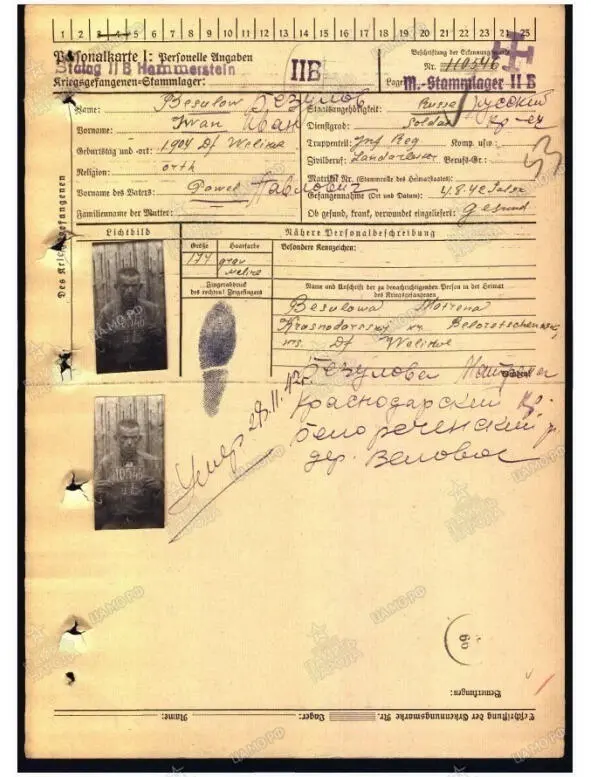 1 2 3 4 5 6 7 8 9 10 11 12 13 14 15 16 17 18 19 20 21 22 23 24 25
Personalkarte I: Personelle Angaben
Stalag II B Hammerstein
Kriegsgefangenen-Stammlager:
IIB
Beschriftung der Erkennungsmarke
Nr. 110546
Lager: M.-Stammlager II B
Des Kriegsgefangenen
Name: Besulow Безулов
Vorname: Iwan Иван
Geburtstag und -ort: 1904 Df
Religion: orth
Vorname des Vaters: Pawel Павлович
Familienname der Mutter:
Staatsangehörigkeit: Russe Русский
Dienstgrad: Soldat кр-ец
Truppenteil: Inf Reg Komp. usw.:
Zivilberuf: Berufs-Gr.:
Matrikel Nr. (Stammrolle des Heimatstaates):
Gefangennahme (Ort und Datum): 4.8.42
Ob gesund, krank, verwundet eingeliefert: gesund
Lichtbild
Nähere Personalbeschreibung
Größe
Haarfarbe
Besondere Kennzeichen:
174
Fingerabdruck
des rechten Zeigefingers
Name und Anschrift der zu benachrichtigenden Person in der Heimat
des Kriegsgefangenen
Besulowa Motrena
Krasnodarsky
Df
Безулова
Краснодарский кр.
белореченский р.
дер. Веловое
Умер 28.11.42г.
Bemerkungen:
Beschriftung der Erkennungsmarke Nr. Lager: Name:
ЦАМО.РФ
ПАМЯТЬ НАРОДА